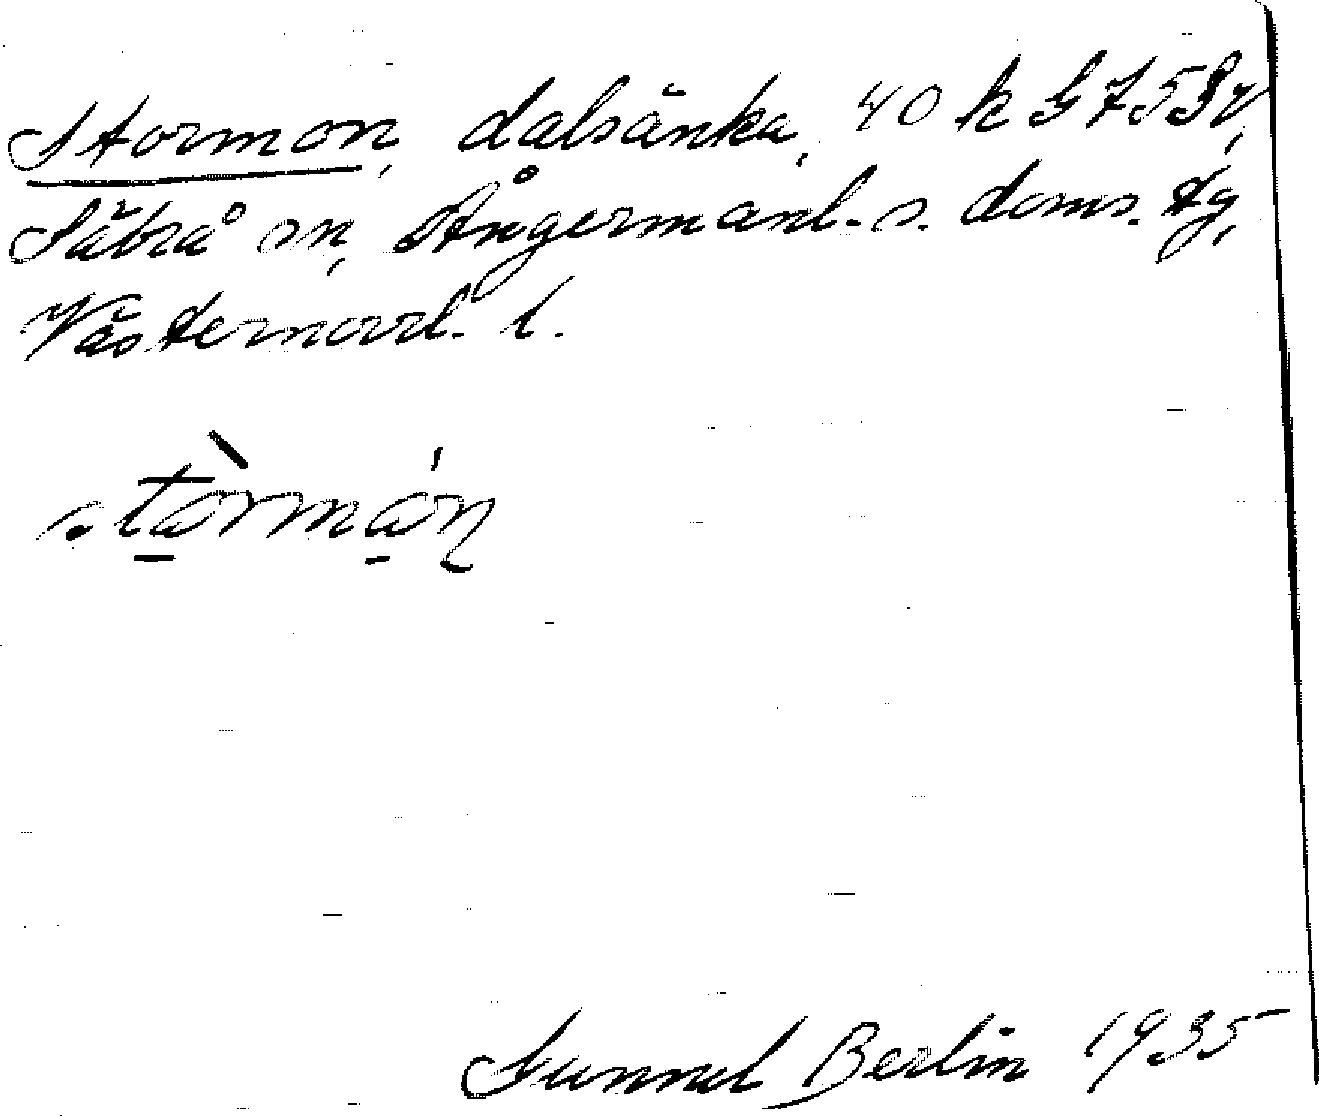 Stormon, dalsänka, 40 k G 7 5 Sv,
Säbrå sn, Ångermanl. s. doms. tg,
Västernorrl. l.
stòrmón
Gunnel Berlin 1935